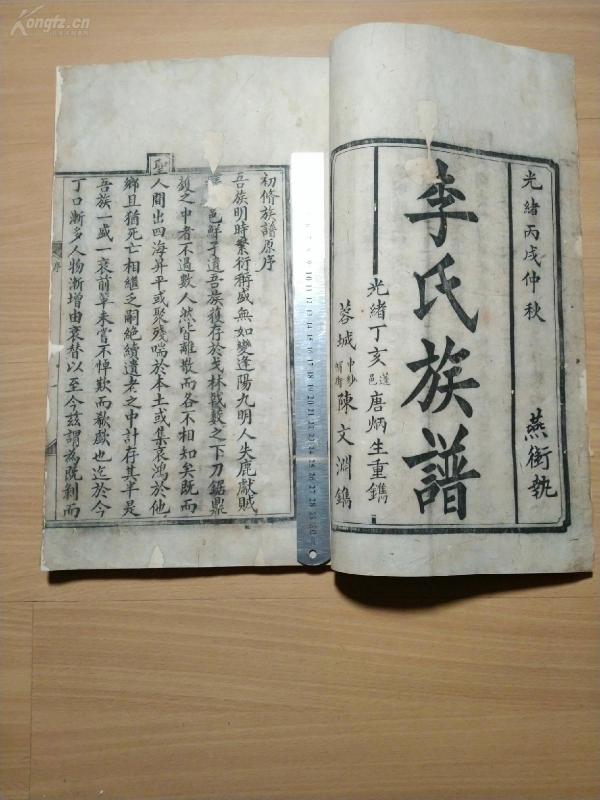 Kongfz.cn
光緒丙戌仲秋
燕銜執
李氏族譜
光緒丁亥遂邑唐炳生重鐫
蓉城中紗帽街陳文淵鐫
初脩族譜原序
吾族明時繁衍稱盛無如變逢陽九明人失鹿獻賊
邑鮮孑遺吾族獲存於戈林戟藪之下刀鋸鼎
鑊之中者不過數人然皆離散而各不相知矣既而
聖
人間出四海昇平或聚殘喘於本土或集哀鴻於他
鄉且猶死亡相繼乏嗣絕續遺老之中計存其半是
吾族一盛一衰前輩未嘗不悼歎而欷歔也迄於今
丁口漸多人物漸增由衰替以至今茲謂為既剝而
序